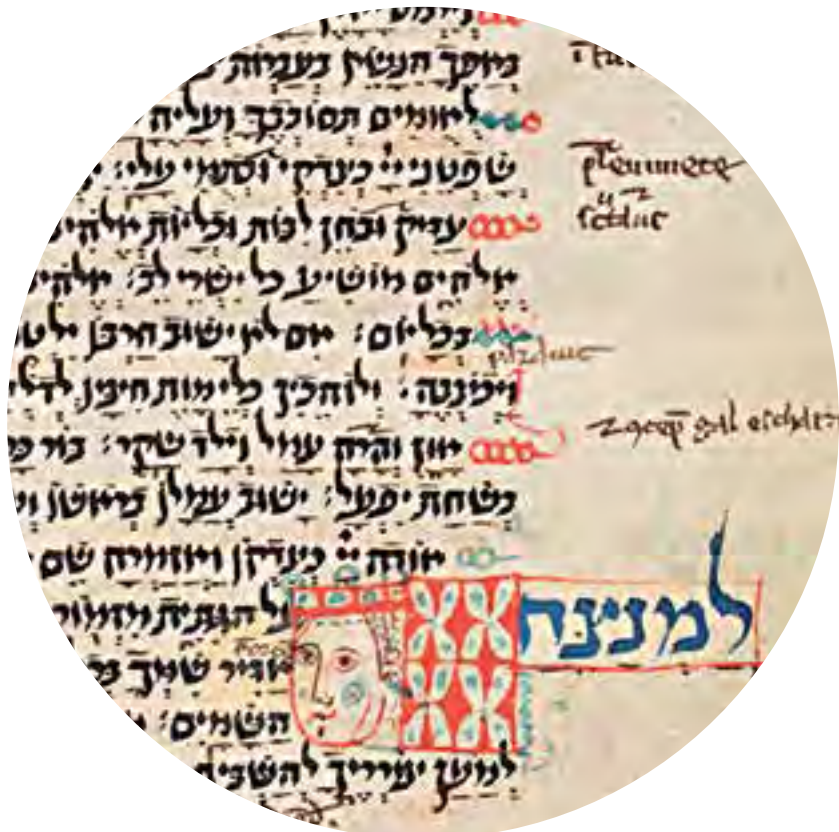 באפך הנשא בעברות
לאומים תסובבך ועליה
שפטני יי כצדקי וכתמי עלי:
צדיק ובחן לבות וכליות אלהים
אלהים מושיע כל ישרי לב: אלהים
בכל יום: אם לא ישוב חרבו ילטו
ויכננה: ולו הכין כלי מות חיצו לדל
און והרה עמל וילד שקר: בור כר
בשחת יפעל: ישוב עמלו בראשו ו
אודה יי כצדקו ואזמרה שם
למנצח
על הגתית מזמור
אדיר שמך ב
השמים:
למען צורריך להשבית